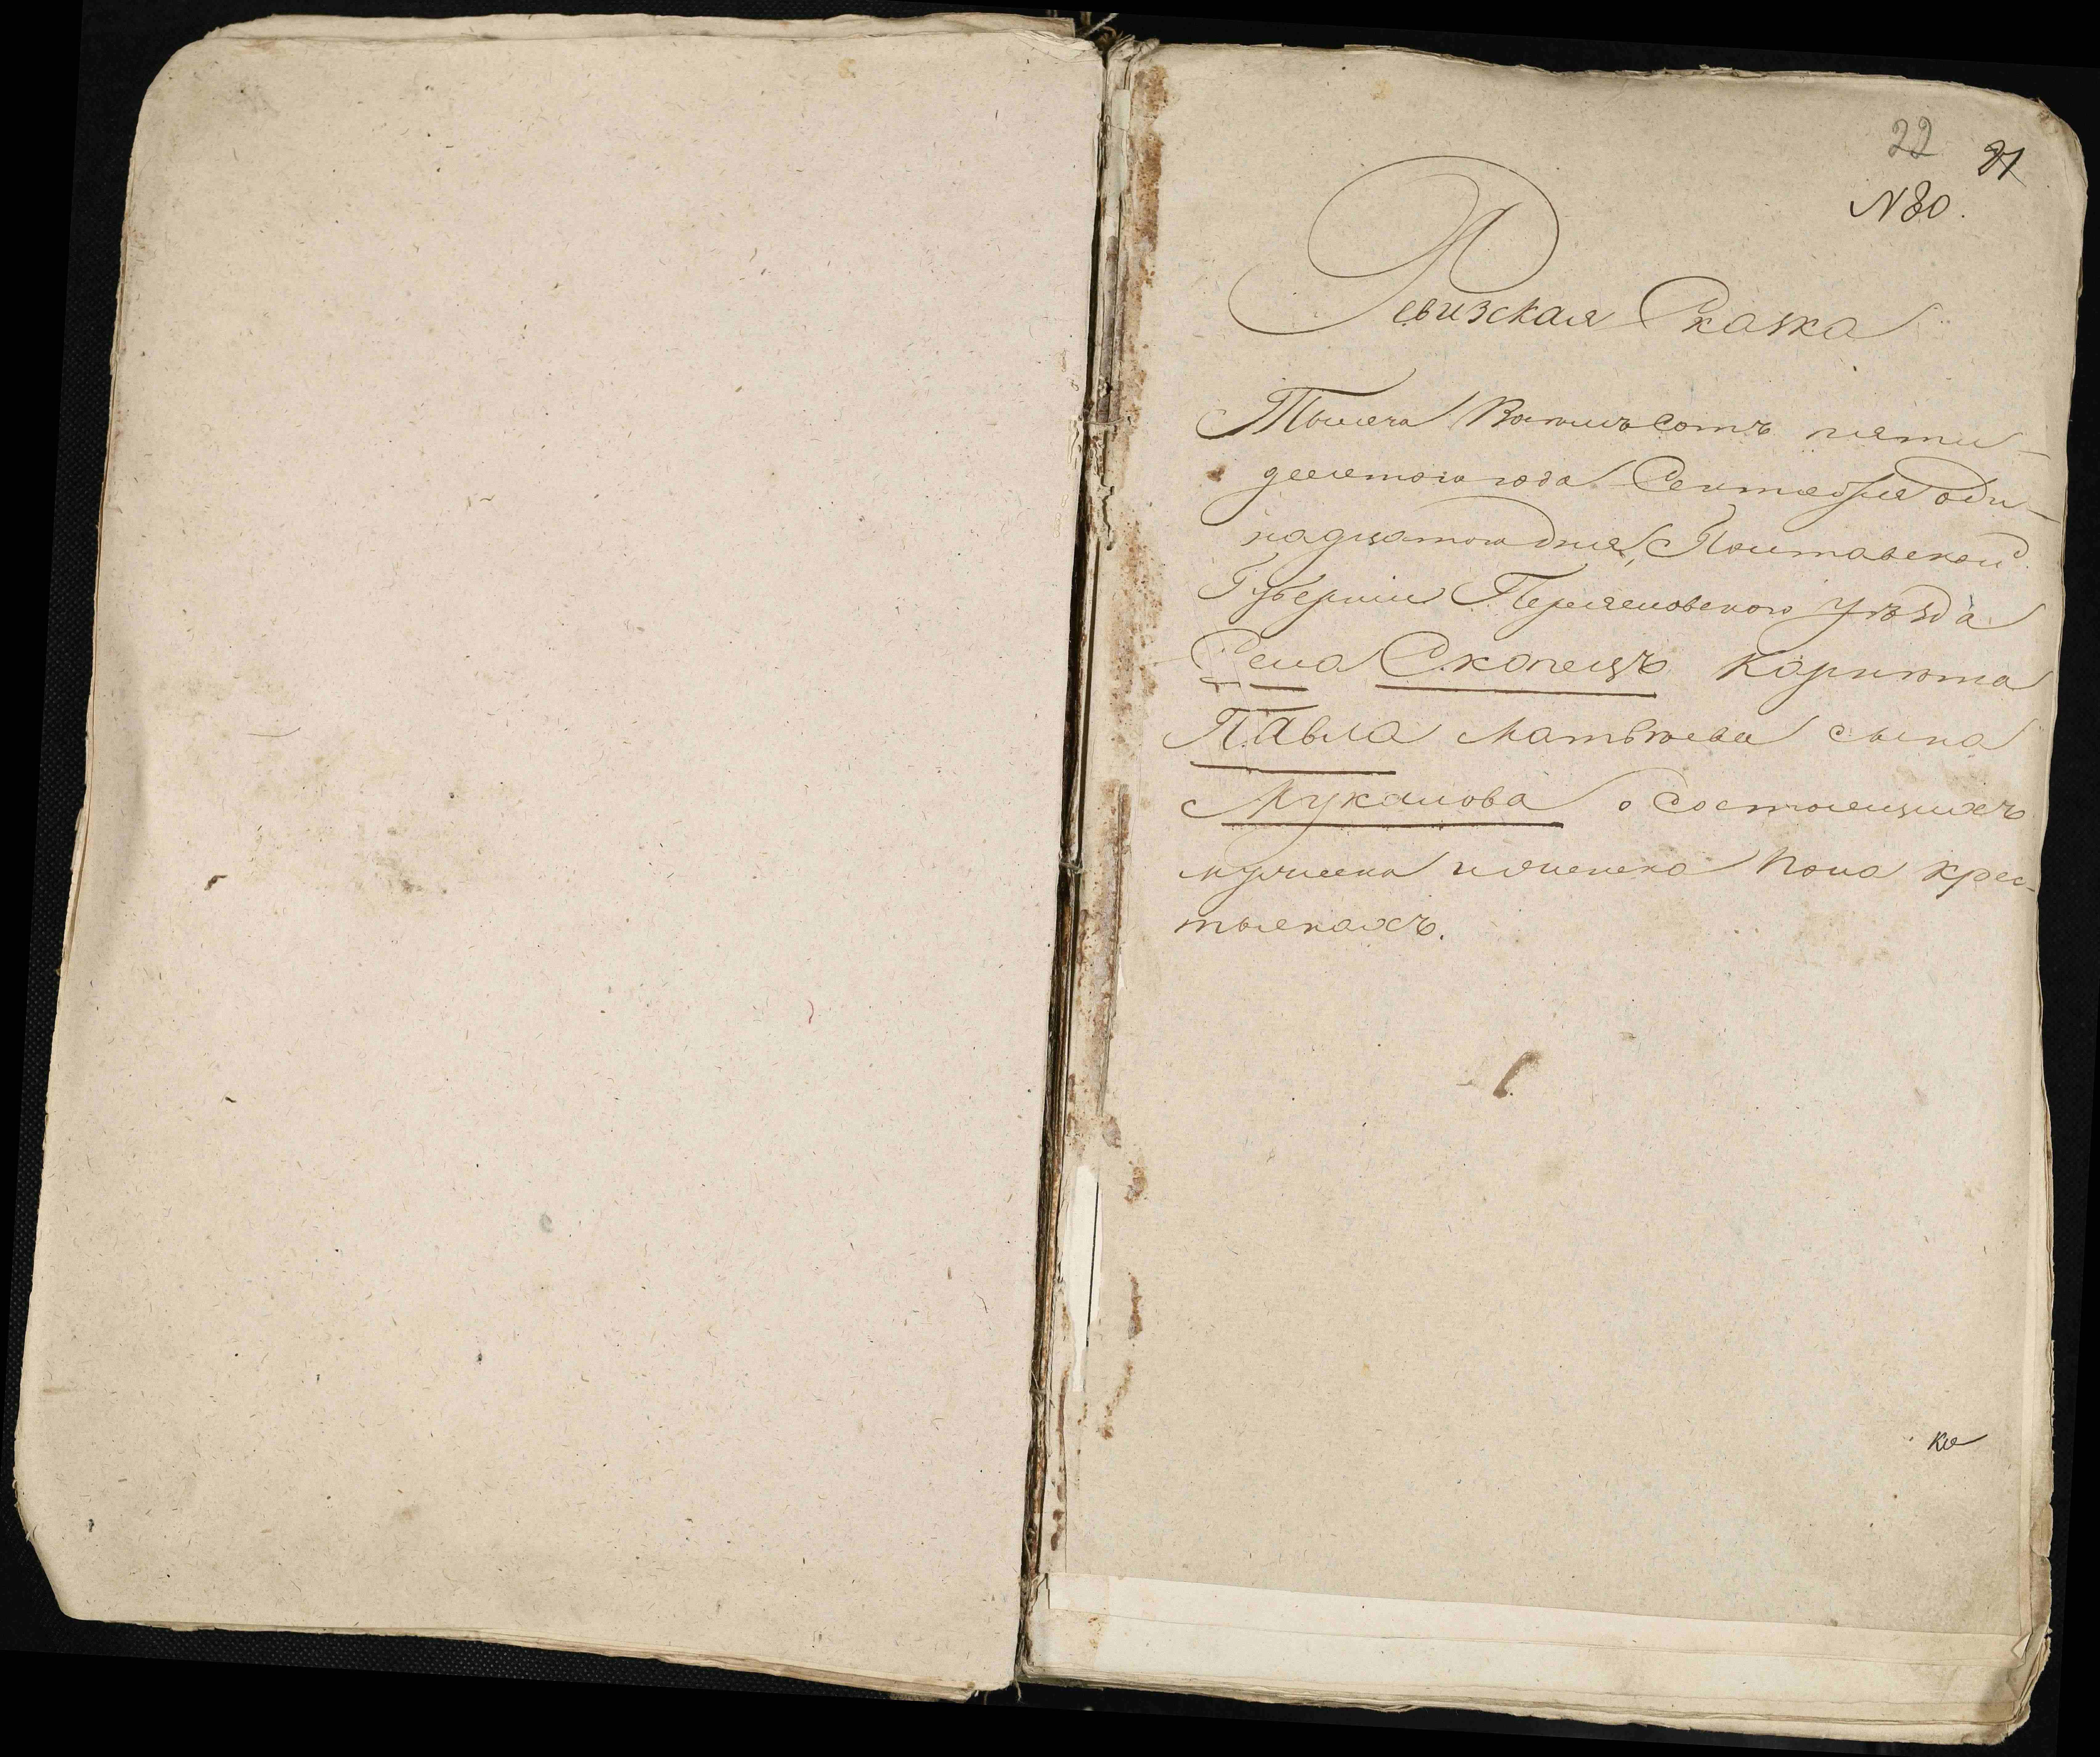 22 21
N 80.
Ревизская Сказка
Тысяча Восимъ сотъ пяти-
десятого года Сентября оди-
надцатого дня, Полтавской
Губерніи Переясловского уѣзда
Села Скопецъ Корнѣта
Павла Матвѣева сына
Лукашова о состоящихъ
мужеска иженска пола крес-
тьянахъ.